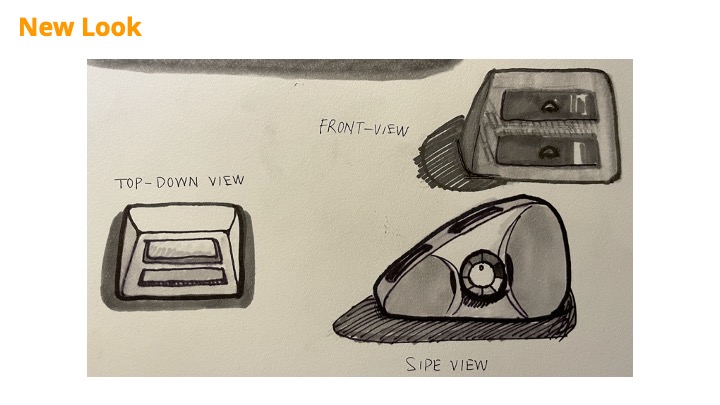 New Look
FRONT-VIEW
TOP-DOWN VIEW
SIPE VIEW